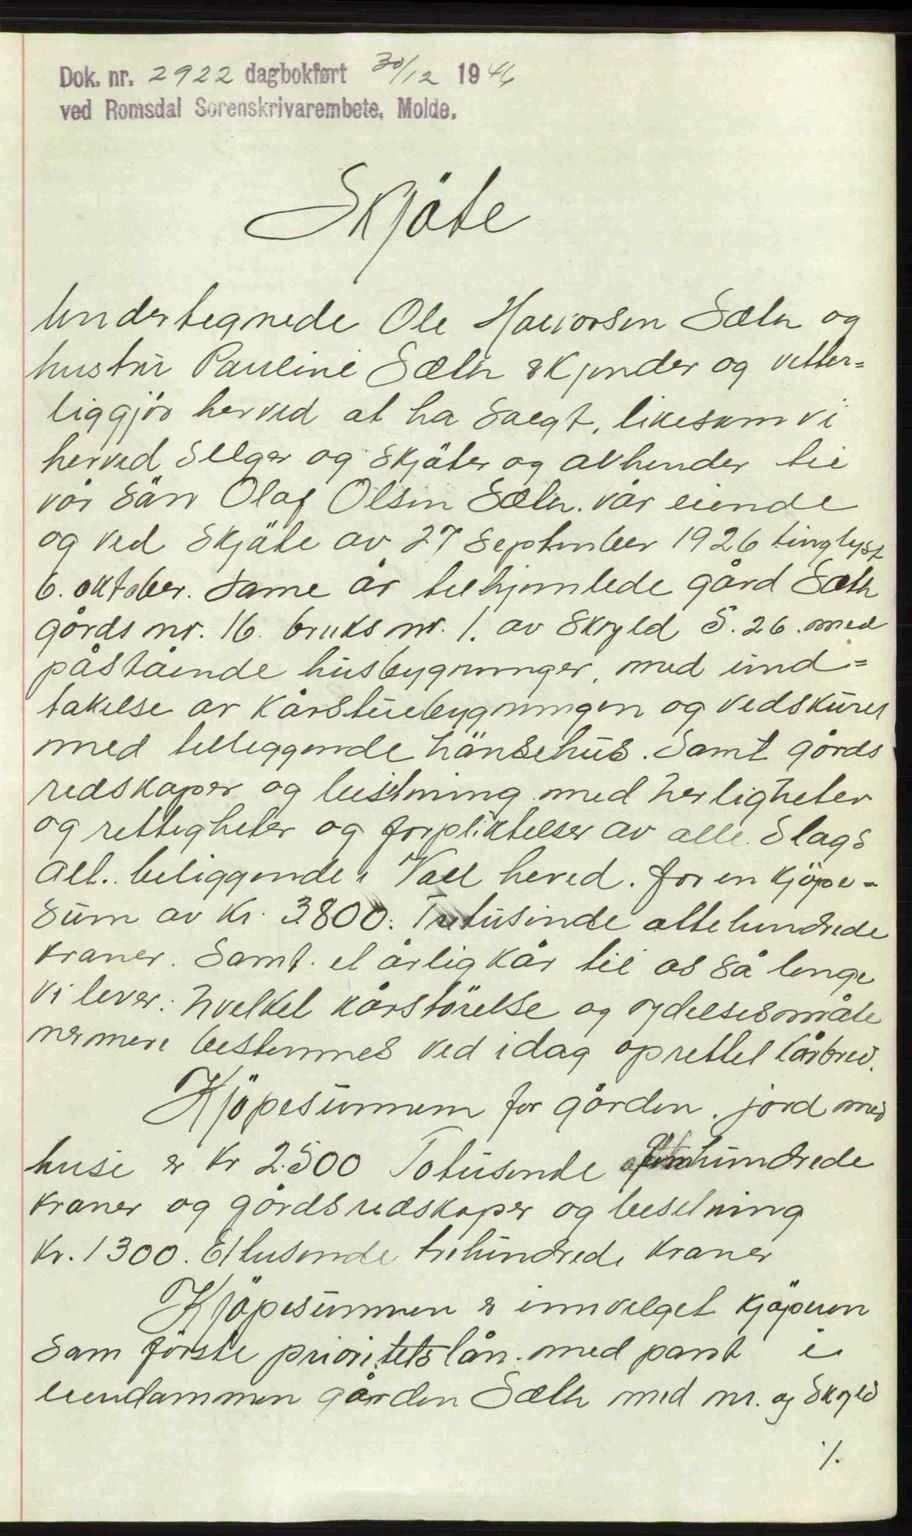 Dok. nr. 2922 dagbokført 30/12 1946
ved Romsdal Sorenskrivarembete, Molde.
Skjöte
Undertegnede Ole Halvorsen Sæth og
hustru Pauline Sæth skjönder og vitter=
liggjör herved at ha saalgt, likesom vi
herved selger og skjöter og avhender til
vör Sön Olaf Olsen Sæth. vår eiende
og ved Skjöte av 27 September 1926 tinglyst
6. oktober. Same år tilhjemlede gård Sæth
gårds nr. 16. bruks nr. 1. av Skyld 5.26. med
påståënde husbygninger, med und=
takelse av kårstuebygningen og vedskuret
med tilliggende hönsehus. Samt gårds
redskaper og besetning med herligheter
og rettigheter og forpliktelser av alle Slags
alt. beliggende i herred. for en kjöpe=
sum av Kr. 3800. Tretusinde ottehundrede
kroner. Samt et årlig kår til os så lenge
vi lever. hvilket kårstörrelse og ydelsesmåte
nermere bestemmes ved idag oprettet kårbrev.
Kjöpesummen for gården. jord med
huse er Kr 2500 Totusende femhundrede
kroner og gårdsredskaper og besetning
Kr. 1300. Ettusende trehundrede kroner
Kjöpesummen er innvilget kjöperen
Som förste prioritetslån. med pant i
eiendommen gården Sæth med nr. og Skyld
./.